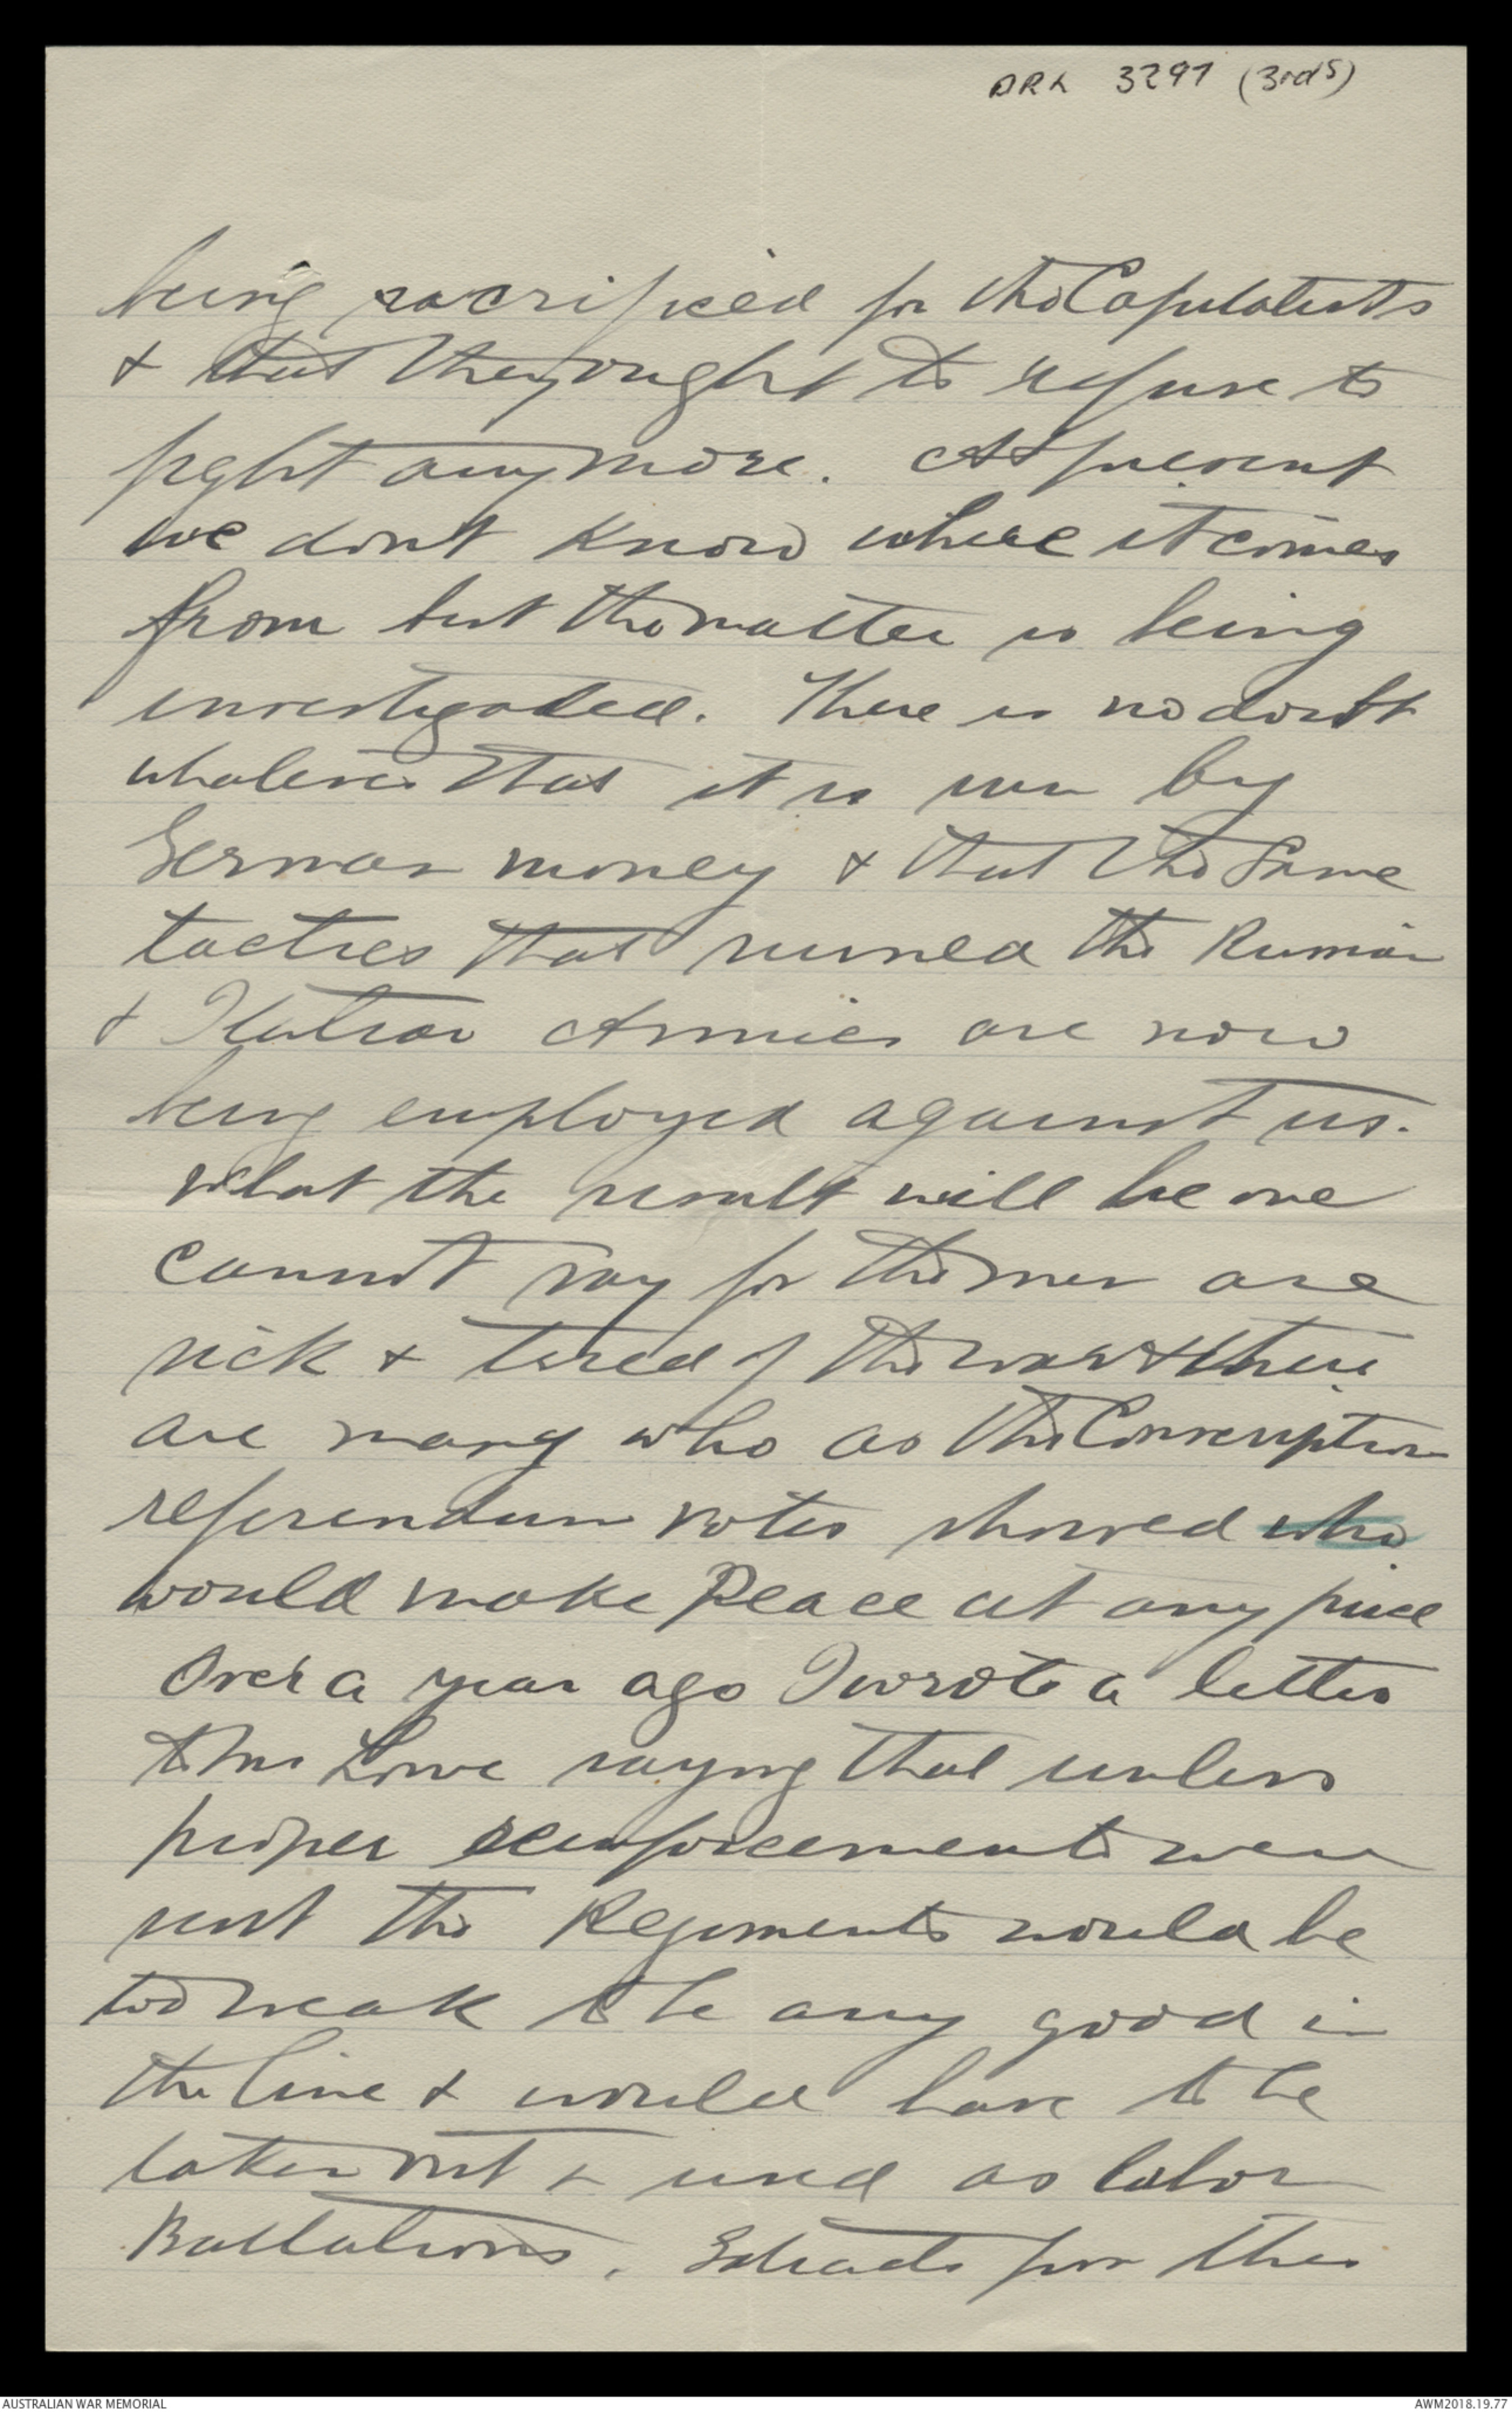 DRL 3297 (3rd S)
being sacrificed for the Capitalists
& that they ought to refuse to
fight any more. At present
we don't know where it comes
from but the matter is being
investigated. There is no doubt
whatever that it is run by
German money & that the same
tactics that ruined the Russian
& Italian Armies are now
being employed against us.
What the result will be one
cannot say for the men are
sick & tired of the war & there
are many who as the Conscription
referendum votes showed who
would make Peace at any price
Over a year ago I wrote a letter
to Mr Lowe saying that unless
proper reinforcements were
sent the Regiments would be
too weak to be any good in
the line & would have to be
taken out & used as labor
Battalions. Extracts from this
AUSTRALIAN WAR MEMORIAL
AWM2018.19.77